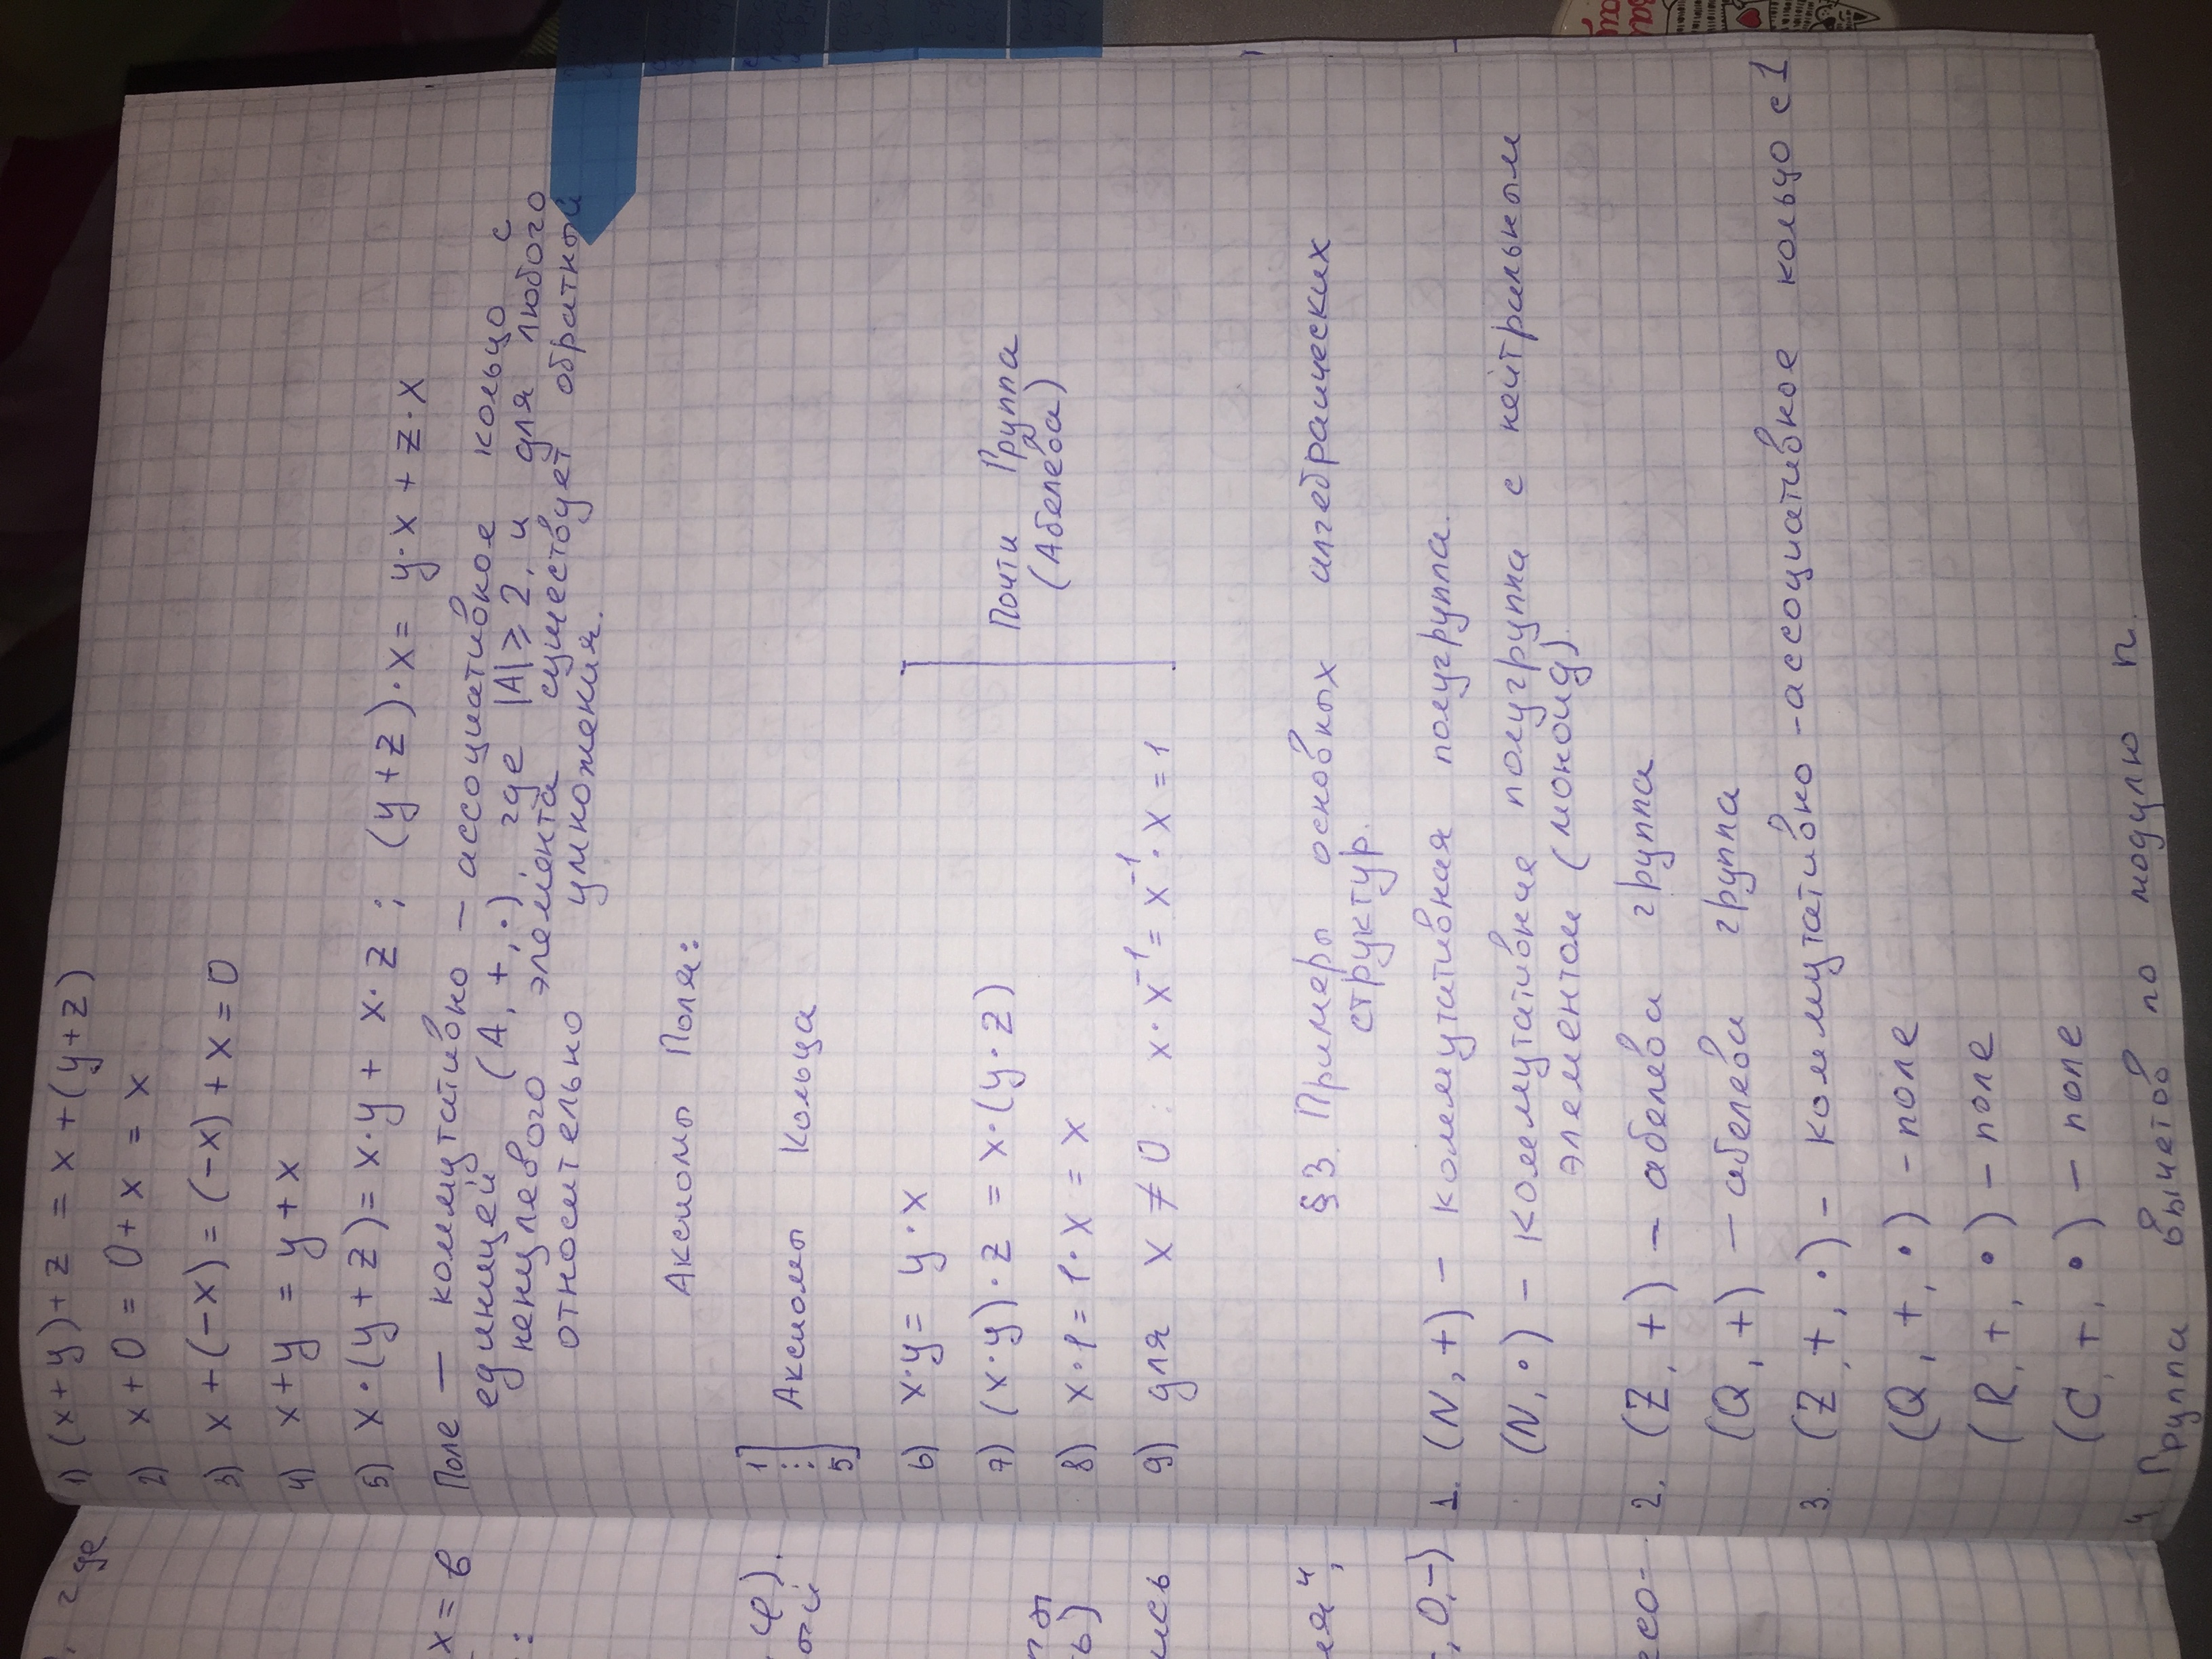 , где
x = в
:
, φ).
ый
ь)
ись
ия",
, 0, -)
ссо-
1) (x+y)+z = x+(y+z)
2) x+0 = 0+x = x
3) x+(-x) = (-x)+x = 0
4) x+y = y+x
5) x·(y+z) = x·y + x·z ; (y+z)·x = y·x + z·x
Поле — коммутативно – ассоциативное кольцо с
единицей (A, +, ·), где |A| ⩾ 2, и для любого
ненулевого элемента существует обратный
относительно умножения.
Аксиомы Поля:
1
⋮ Аксиомы Кольца
5
6) x·y = y·x
7) (x·y)·z = x·(y·z)
8) x·1 = 1·x = x
9) для x ≠ 0 : x·x⁻¹ = x⁻¹·x = 1
Почти Группа
(Абелева)
§3. Примеры основных алгебраических
структур.
1. (N, +) – коммутативная полугруппа.
(N, ·) – коммутативная полугруппа с нейтральным
элементом (моноид).
2. (Z, +) – абелева группа
(Q, +) – абелева группа
3. (Z, +, ·) – коммутативно-ассоциативное кольцо с 1
(Q, +, ·) – поле
(R, +, ·) – поле
(C, +, ·) – поле
4 Группа вычетов по модулю n.